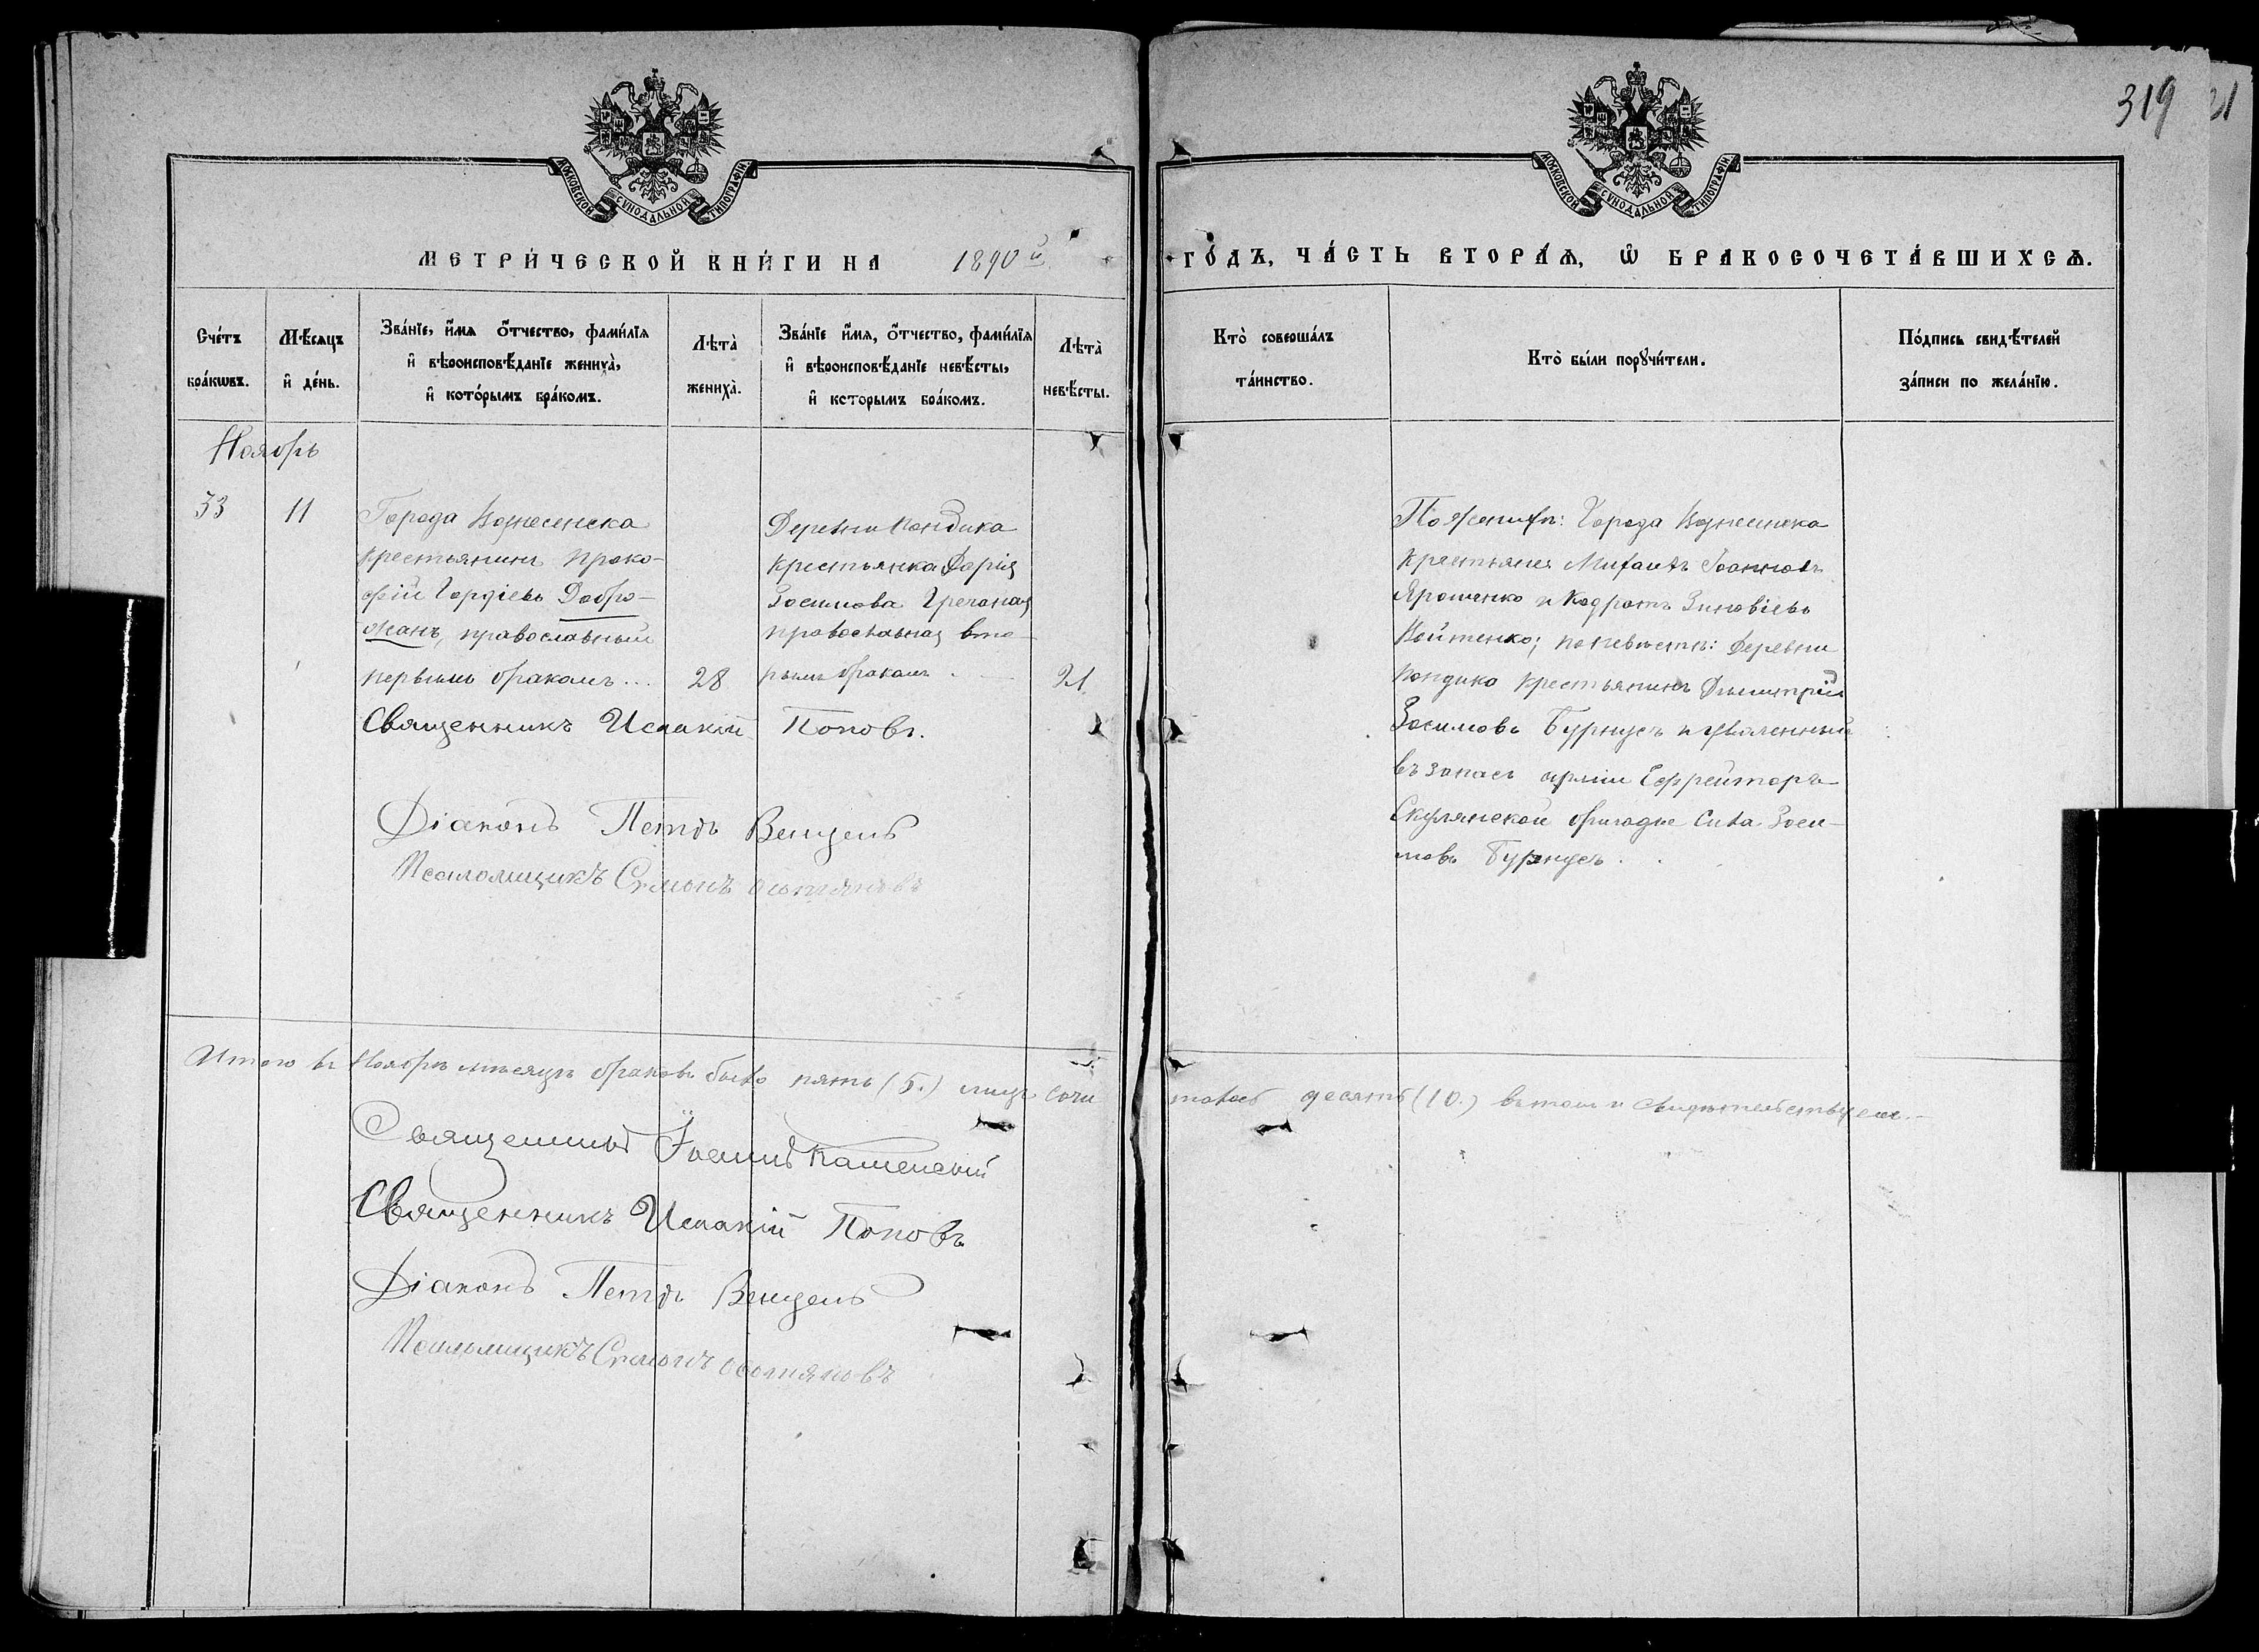 319
МОСКОВСКОЙ СУНОДАЛЬНОЙ ТИПОГРАФІИ
МОСКОВСКОЙ СУНОДАЛЬНОЙ ТИПОГРАФІИ
МЕТРИ́ЧЕСКОЙ КНИ́ГИ НА 1890й ГО́ДЪ, ЧА́СТЬ ВТОРА́Ѧ, Ѡ҆ БРАКОСОЧЕТА́ВШИХСѦ.
Сче́тъ
бра́кѡвъ.
Мѣ́сяцъ
и҆ де́нь.
Зва́нїе, и҆́мѧ ѻ҆́тчество, фами́лїѧ
и҆ вѣроисповѣ́данїе жениха̀,
и҆ кото́рымъ бра́комъ.
Лѣта̀
жениха̀.
Зва́нїе и҆́мѧ, ѻ҆́тчество, фами́лїѧ
и҆ вѣроисповѣ́данїе невѣ́сты,
и҆ кото́рымъ бра́комъ.
Лѣта̀
невѣ́сты.
Кто̀ соверша́лъ
та́инство.
Кто̀ бы́ли порꙋчи́тели.
По́дпись свидѣ́телей
за́писи по жела́нїю.
Ноябрь
33
11
Города Вознесенска
крестьянинъ Проко-
фій Гордіевъ Добро-
жанъ, православный
первымъ бракомъ...
28
Деревни Кондика
крестьянка Дарія
Зосимова Гречаная
православная вто-
рымъ бракомъ
21
Священникъ Исаакій Поповъ.
Діаконъ Петръ Венцель
Псаломщикъ Симонъ
По женихѣ: Города Вознесенска
крестьяне Михаилъ Іоанновъ
Ярошенко и Кодратъ Зиновіевъ
Войтенко; по невѣстѣ: Деревни
Кондика крестьянинъ Димитрій
Зосимовъ Бурнусъ и уволенный
въ запасъ арміи Ефрейторъ
Скулянской бригады Сила Зоси-
мовъ Бурнусъ.
Итого въ Ноябрѣ мѣсяцѣ браковъ было пять (5.) лицъ сочи
талось десять (10.) въ томъ и свидѣтельствуемъ.
Священникъ Іоаннъ Каменскій
Священникъ Исаакій Поповъ
Діаконъ Петръ Венцель
Псаломщикъ Симонъ